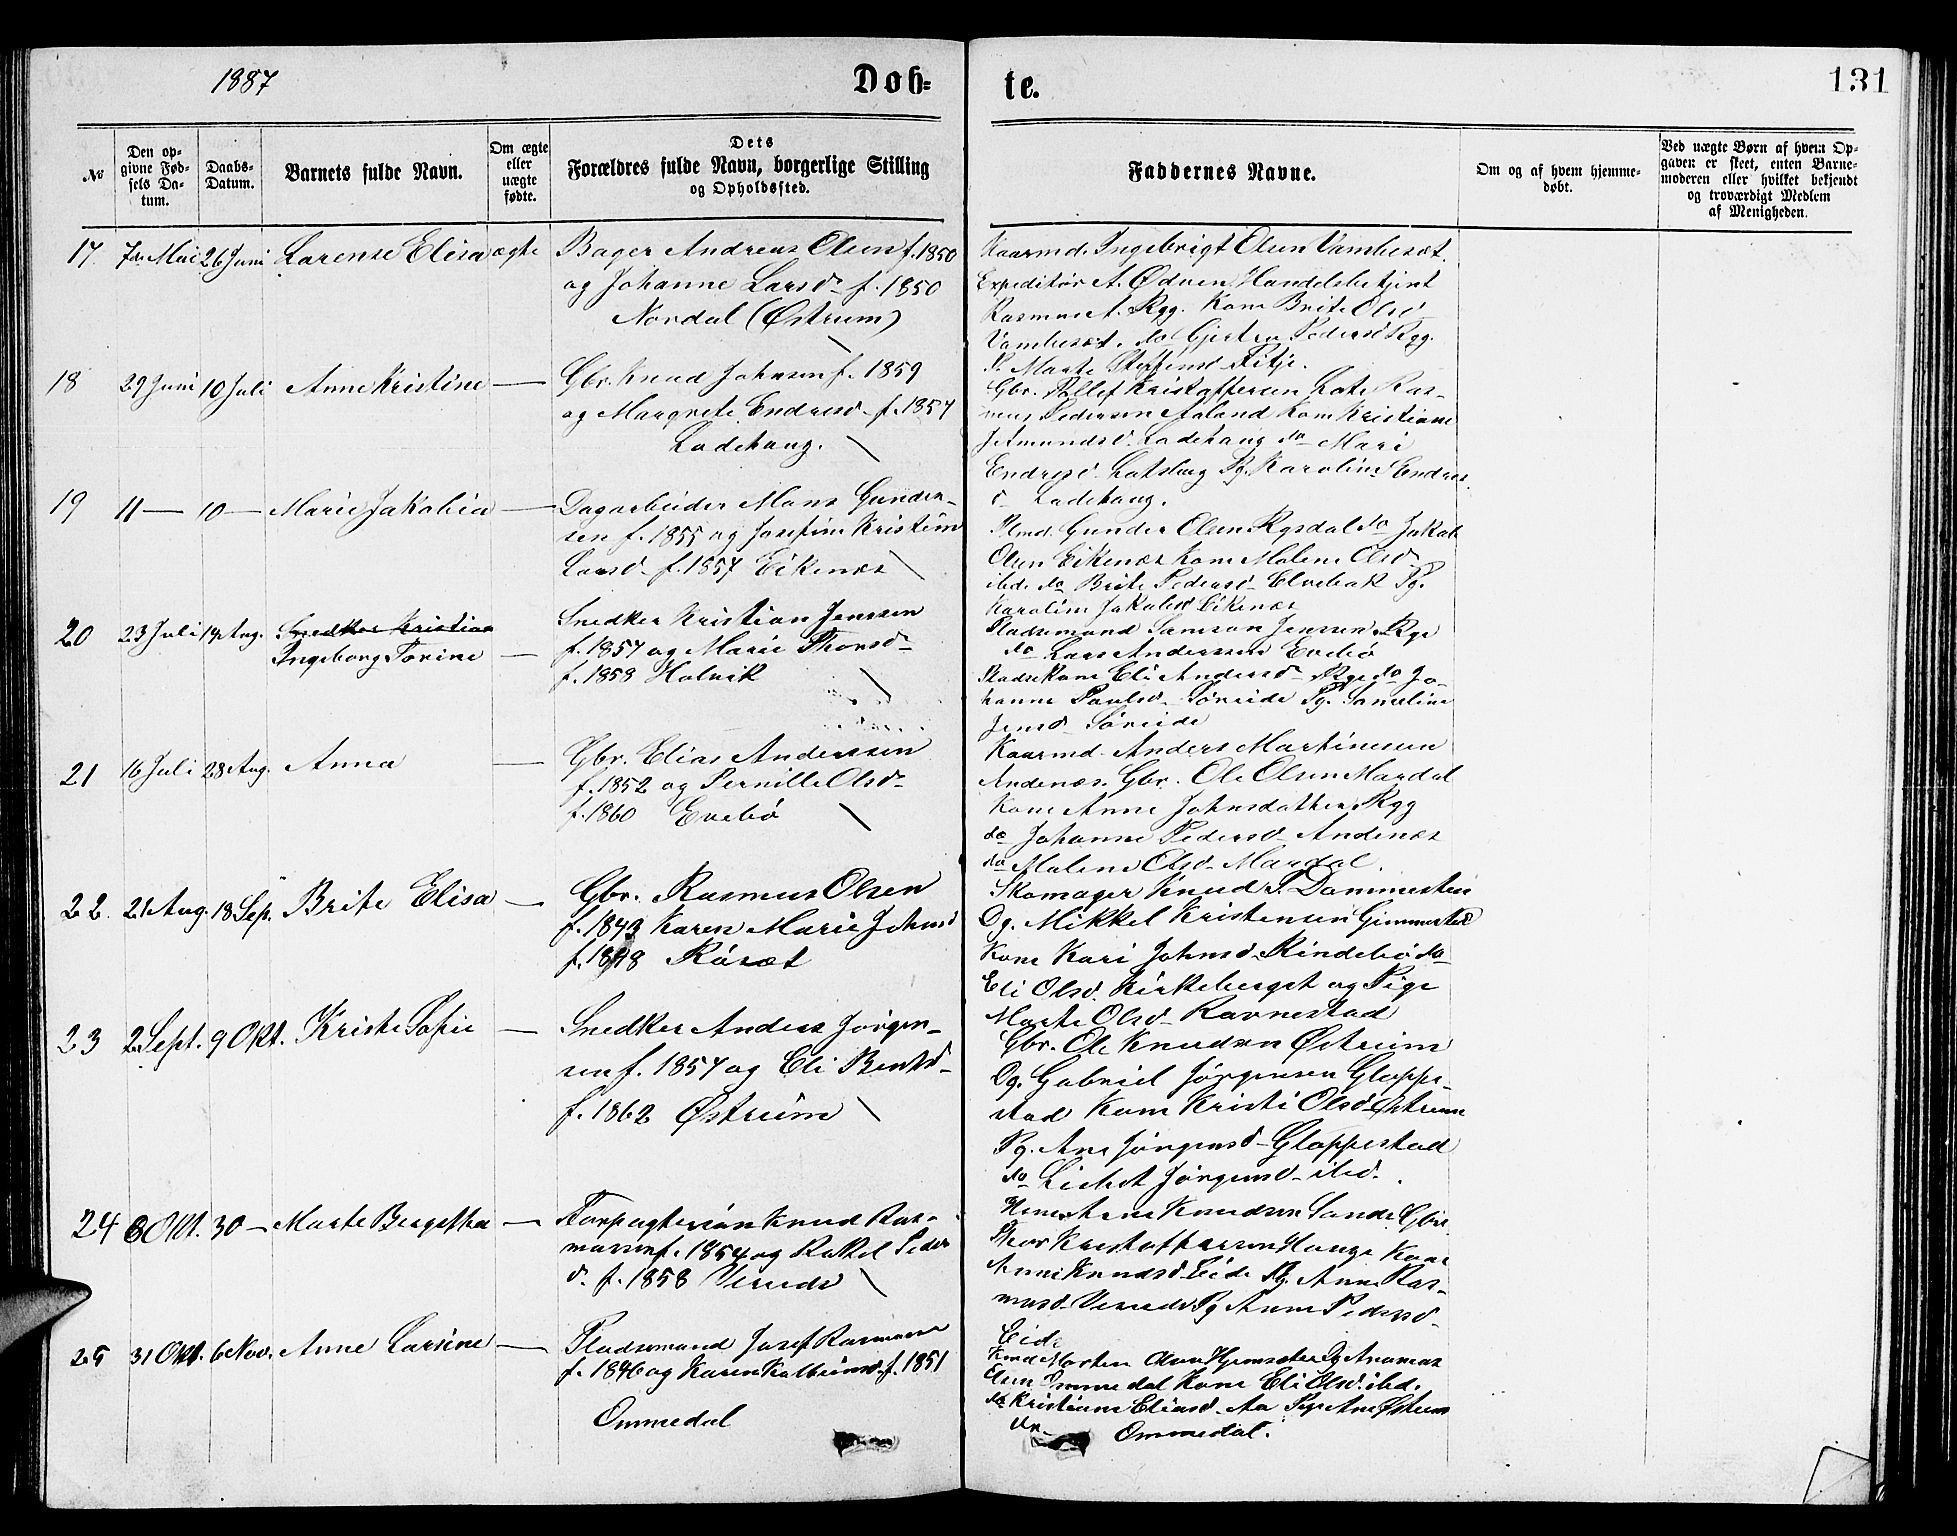 1887
Døb=
te.
131
No
Den op-
givne Fød-
sels Da-
tum.
Daabs-
Datum.
Barnets fulde Navn.
Om ægte
eller
uægte
fødte.
Dets
Forældres fulde Navn, borgerlige Stilling
og Opholdssted.
Faddernes Navne.
Om og af hvem hjemme-
døbt.
Ved uægte Børn af hvem Op-
gaven er skeet, enten Barne-
moderen eller hvilket bekjendt
og troværdigt Medlem
af Menigheden.
17. 7de Mai 26 Juni Larense Elisa ægte
Bager Andreas Olsen f. 1850
og Johanne Larsd f. 1850
Nordal (Østrum)
Kaarmd. Ingebrigt Olsen Vambeset.
Expeditør A. Ødven, Handelsbetjent
Rasmus A. Ryg. Kone Brite Olsd
Vambeset. do Gjertru Pedersd Ryg.
P. Marte Steffensd Fitje.
18 29 Juni 10 Juli Anne Kristine —
Gbr. Knud Johnsen f. 1859
og Margrete Endresd f. 1857
Ladehaug.
Gbr. Pollef Kristoffersen Lote Ras-
mus Pedersen Aaland Kone Kristiane
Amundsd. Ladehaug do Mari
Endresd Pg. Karoline Endres
d Ladehaug.
19 11 — 10 — Marie Jakobia —
Dagarbeider Mons Gunder-
sen f. 1855 og Josefine Kristine
Larsd f. 1857 Eikenæs
Plmd. Gunder Olsen Rysdal do Jakob
Olsen Eikenæs Kone Malene Olsd
ibd. do Brite Pedersd Elvebak Pg.
Karoline Jakobsd Eikenæs
20 23 Juli 14 Aug. Snedker Kristian
Ingeborg Torine —
Snedker Kristian Jenssen
f. 1857 og Marie Thorsd
f. 1858 Holvik
Pladsemand Samson Jenssen Rye
do Lars Anderssen Evebø
Pladsekone Eli Andersd Rye do Jo-
hanne Paulsd Søreide Pg. Sameline
Jensd Søreide
21 16 Juli 28 Aug. Anna —
Gbr. Elias Anderssen
f. 1852 og Pernille Olsd
f. 1860 Evebø
Kaarmd Anders Martinusen
Andenæs. Gbr. Ole Olsen Mardal
Kone Anne Johnsdatter Ryg
do Johanne Pedersd Andenæs
do Malene Olsd Mardal.
22. 21 Aug. 18 Sep. Brite Elisa —
Gbr. Rasmus Olsen
f. 1843 Karen Marie Johnsd
f. 1848 Røset
Skomager Knud P. Dammesten
Og. Mikkel Kristensen Gimmestad
Kone Kari Johnsd Rindebø do
Eli Olsd. Kirkeberget og Pige
Marte Olsd Ravnestad
23 2 Sept. 9 Okt. Kriste Sofie —
Snedker Anders Jørgen-
sen f. 1857 og Eli Bentsd
f. 1862 Østrum
Gbr. Ole Knudsen Østrum
Og. Gabriel Jørgensen Gloppe-
stad Kone Kristi Olsd Østrum
Pg. Ane Jørgensd Gloppestad
do Lisbet Jørgensd ibd.
24 8 Okt. 30 — Marte Bergitha —
Forpagter Knud Ras-
mussen f. 1854 og Rakel Peder
d. f. 1858 Vereide
Knudsen Sande Gbr.
Thor Kristoffersen Hauge Kone
Anne Knudsd Eide Pg. Anne Ras-
musd Vereide Pg Anne Pedersd
Eide
25 31 Okt. 6 Nov. Anne Larsine —
Pladsemand Josef Rasmussen
f. 1846 og Karen Kolbeinsd. f. 1851
Ommedal
Morten Olsen Hjemseter
Olsen Ommedal Kone Eli Olsd. ibd.
do Kristiane Eliasd Aa Pige Ane
Ommedal.